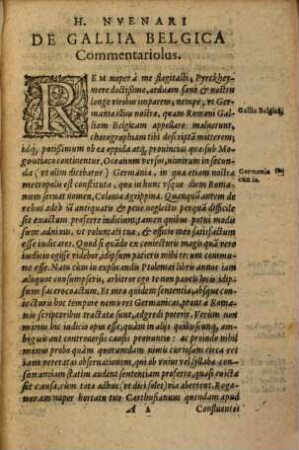 H. NVENARI
DE GALLIA BELGICA
Commentariolus.
REM nuper à me flagitasti, Pyrckhey-
mere doctissime, arduam sane & nostris
longe viribus imparem, nempe, vt Ger-
maniae illius nostrae, quam Romani Gal-
liam Belgicam appellare maluerunt,
chorographiam tibi descriptā mitterem;
Gallia Belgica
idq; potissimum ob ea oppida atq; prouincias quae sub Mo-
gontiaco continentur, Oceanum versus, nimirum in secun-
da (vt olim dicebatur) Germania, in qua etiam nostra
Germania
metropolis est constituta, quae in hunc vsque diem Roma-
num seruat nomen, Colonia Agrippina. Quanquā autem de
rebus adeò iā antiquatis & penè neglectis perquā difficile
sit exactum proferre iudicium; amen quibus potui modis
sum adnixus, vt voluntati tuae, & officio meo satisfactum
esse iudicares. Quod si quādo ex coniecturis magis quā vero
iudicio egisse videbor, id ipsum patieris mihi tecum commune
esse. Nam & tu cum in explicandis Ptolemaei libris annos
aliquot consumpseris, arbitror te in non paucis loco id ipsum
Sacerococactum. Et mea quidem sententia, absque con-
iecturis hoc tempore nemo res Germanicas, prout à Roma-
nis scriptoribus tractatae sunt, adgredi poterit. Verùm non
minus hic iudicio opus esse, quàm in alijs quibusq;,
ambigui aut controuersi causas pronuntio : ac proinde nihil
minus probo quàm quorundam nimis curiosam circa res
iam veteratas obseruationem, qui ob vnius vel syllabae con-
sonantiam statim audent sententiam proferre, quasi euicta
sit causa, cùm tota adhuc (vt dici solet) via aberrent. Roga-
meram nuper hortatu tuo Carthusianum quendam apud
A 2 Confluentes